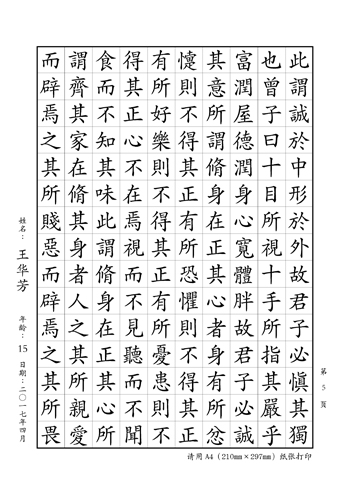 此謂誠於中形於外故君子必慎其獨
也曾子曰十目所視十手所指其嚴乎
富潤屋德潤身心寬體胖故君子必誠
其意所謂脩身在正其心者身有所忿
懥則不得其正有所恐懼則不得其正
有所好樂則不得其正有所憂患則不
得其正心不在焉視而不見聽而不聞
食而不知其味此謂脩身在正其心所
謂齊其家在脩其身者人之其所親愛
而辟焉之其所賤惡而辟焉之其所畏
姓名：王华芳 年龄：15 日期：二〇一七年四月
第 5 页
请用 A4（210mm×297mm）纸张打印